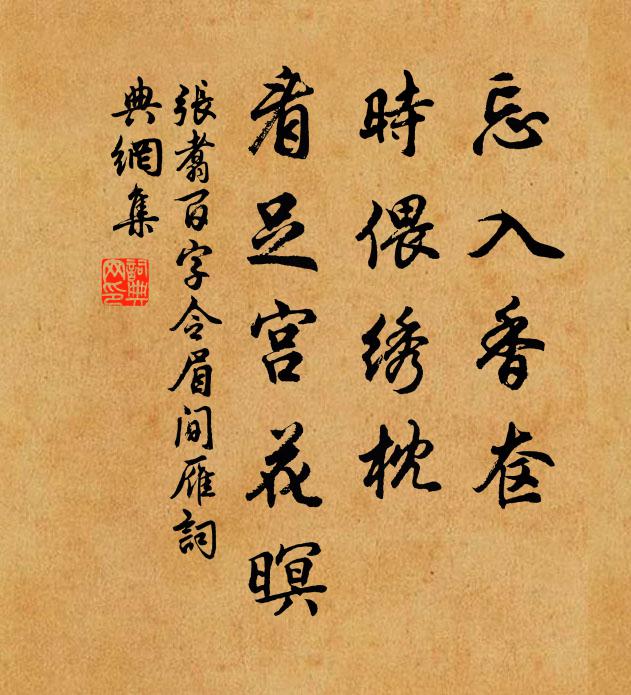 忘入香奁
時偎绣枕
看足宫花暝
張翥百字令眉间雁詞
典網集
詞典
网印